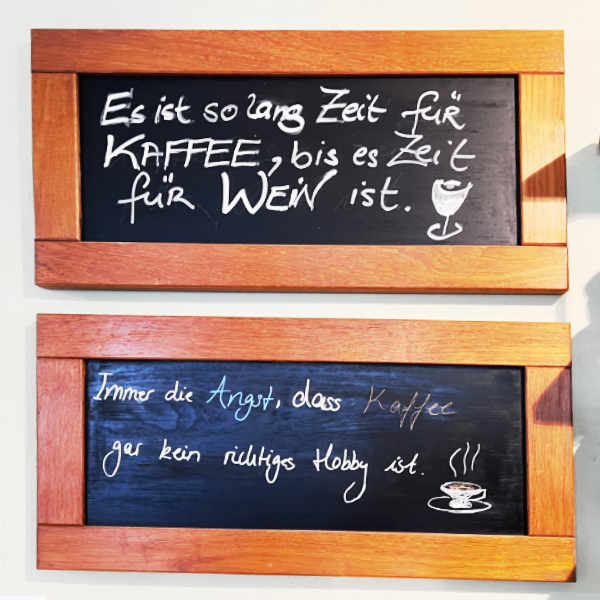 Es ist so lang Zeit für
KAFFEE, bis es Zeit
für WEIN ist.
Immer die Angst, dass Kaffee
gar kein richtiges Hobby ist.